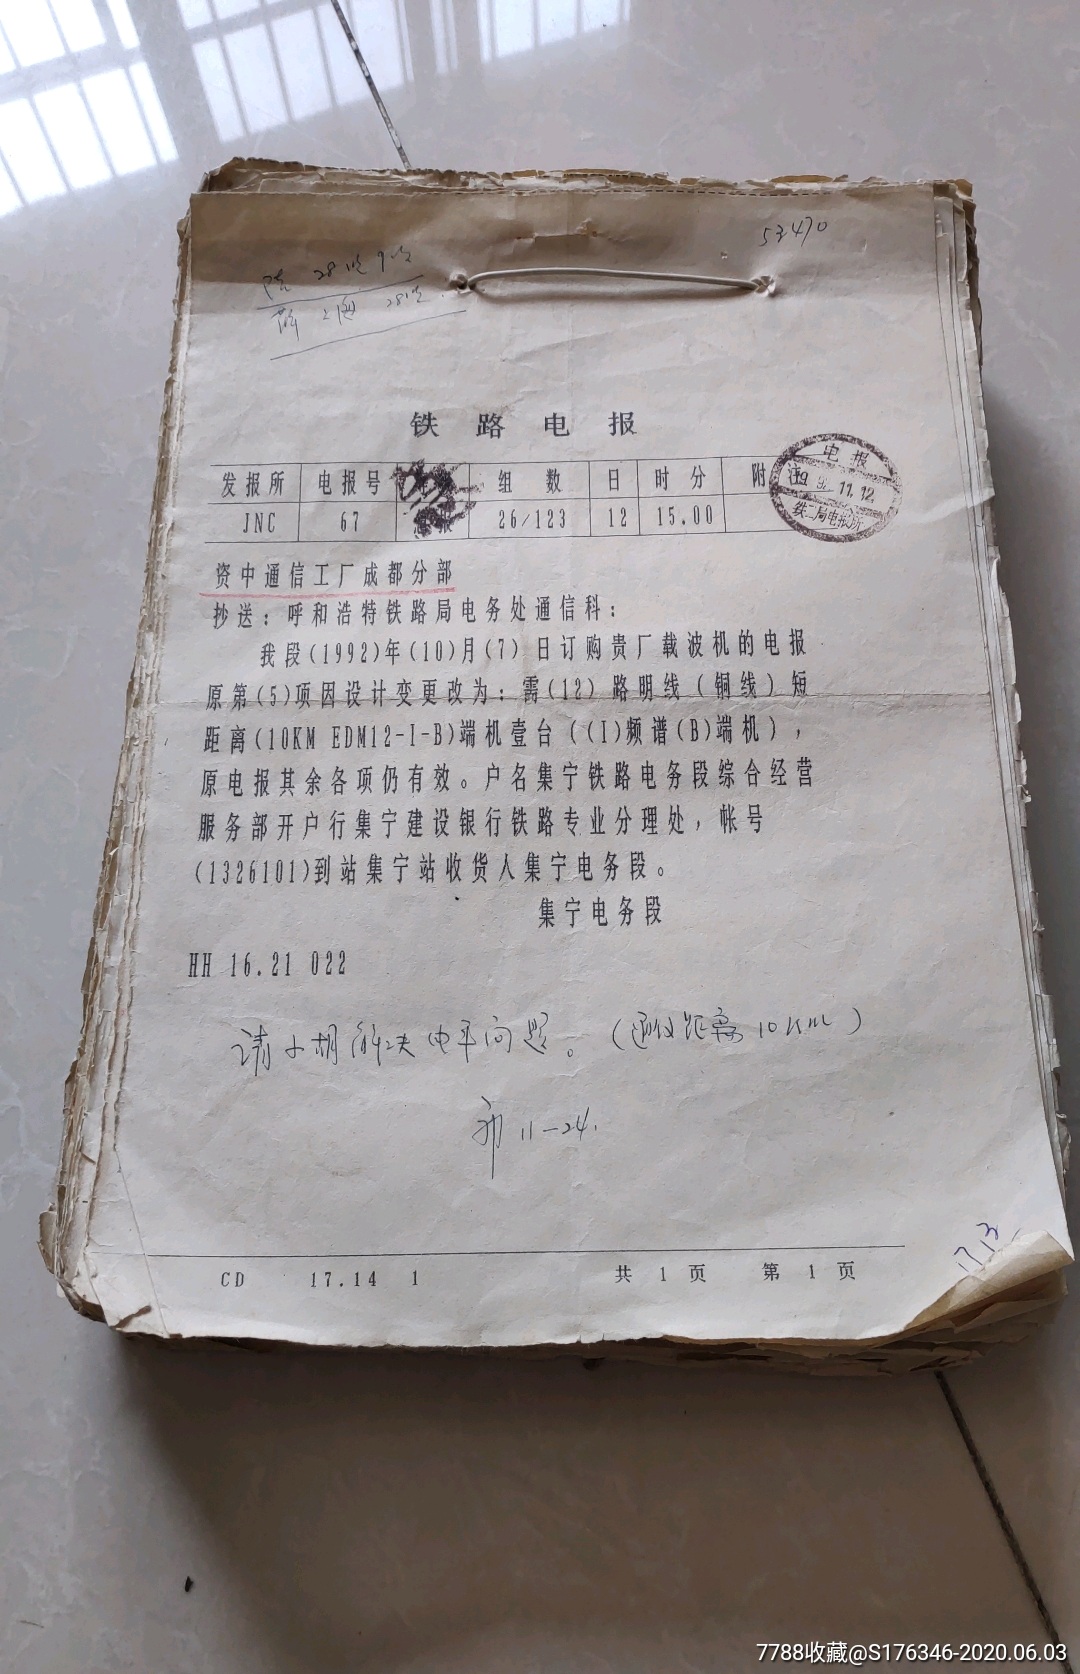 53470
28
上海 28
铁路电报
发报所 电报号 组数 日 时分 附注
JNC 67 26/123 12 15.00
电报
11.12
铁二局电报所
资中通信工厂成都分部
抄送：呼和浩特铁路局电务处通信科：
我段(1992)年(10)月(7)日订购贵厂载波机的电报
原第(5)项因设计变更改为：需(12)路明线（铜线）短
距离(10KM EDM12-I-B)端机壹台（(I)频谱(B)端机），
原电报其余各项仍有效。户名集宁铁路电务段综合经营
服务部开户行集宁建设银行铁路专业分理处，帐号
(1326101)到站集宁站收货人集宁电务段。
集宁电务段
HH 16.21 022
请小胡解决电平问题。（通信距离10KM）
11-24.
CD 17.14 1 共 1 页 第 1 页
7788收藏@S176346-2020.06.03